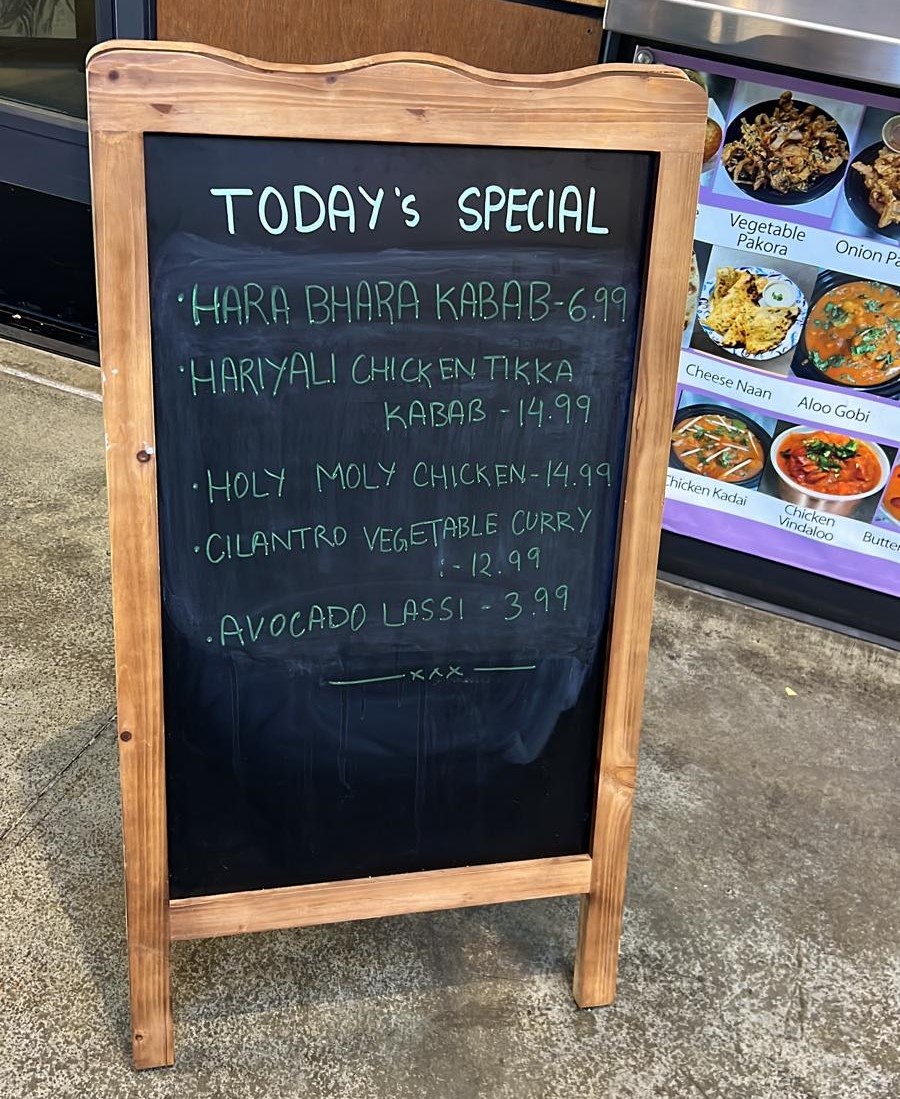 TODAY's SPECIAL
·HARA BHARA KABAB-6.99
·HARIYALI CHICKEN TIKKA
KABAB -14.99
·HOLY MOLY CHICKEN-14.99
·CILANTRO VEGETABLE CURRY
:- 12.99
·AVOCADO LASSI - 3.99
——xxx——
Vegetable
Pakora
Onion
Cheese Naan
Aloo Gobi
Chicken Kadai
Chicken
Vindaloo
Butter